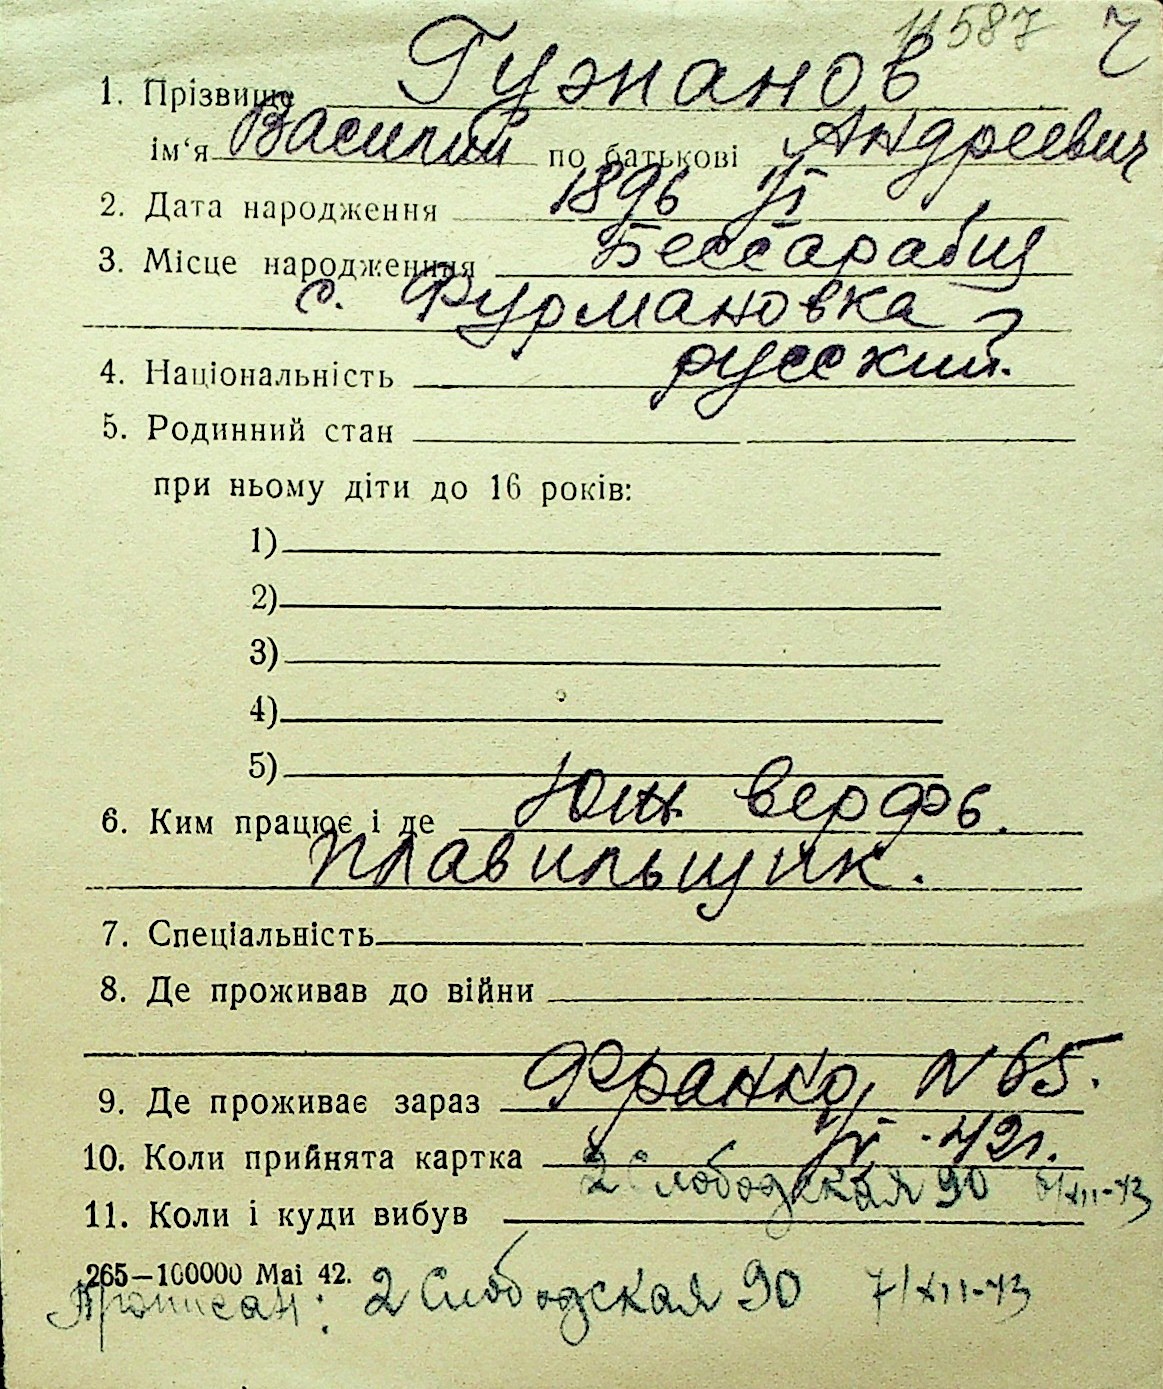 11587 Ч
1. Прізвище Гужанов
ім'я Василий по батькові Андреевич
2. Дата народження 1896 VI
3. Місце народження Бессарабия
с. Фурмановка
4. Національність русский.
5. Родинний стан
при ньому діти до 16 років:
1)
2)
3)
4)
5)
6. Ким працює і де Юж. верфь.
плавильщик.
7. Спеціальність
8. Де проживав до війни
9. Де проживає зараз Франко, N 65.
10. Коли прийнята картка 42г.
2 Слободская 90 6/XII-43
11. Коли і куди вибув
265—100000 Mai 42.
Прописан: 2 Слободская 90 7/XII-43